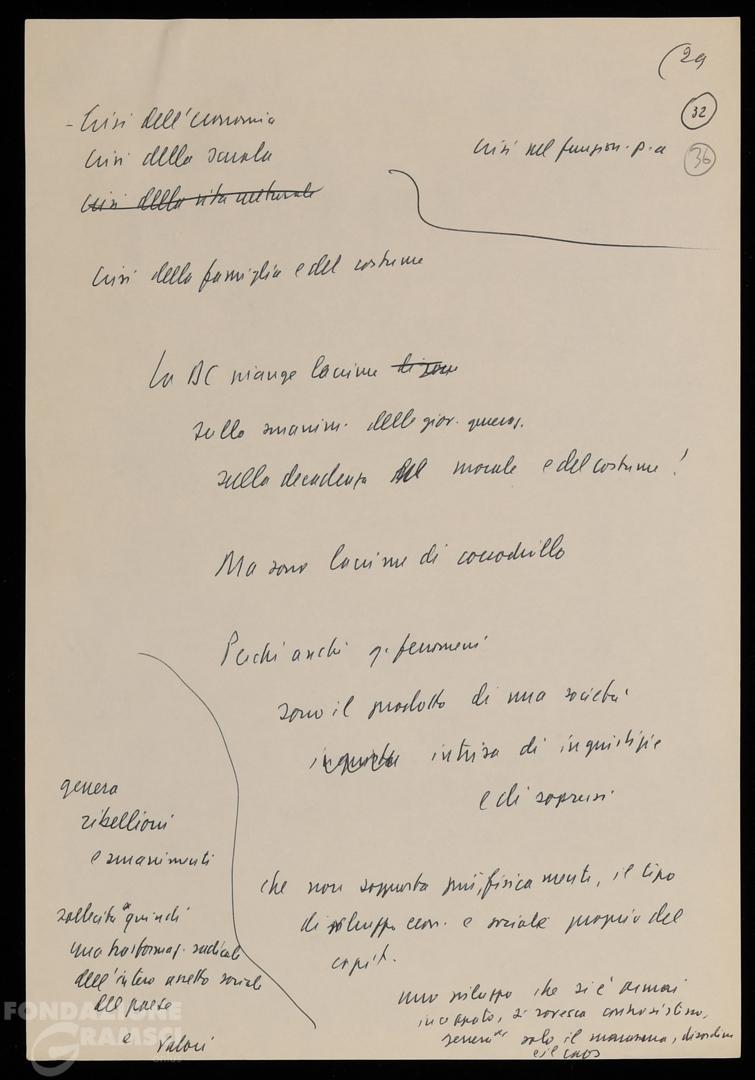 29
32
36
- Crisi dell'economia
crisi della scuola
crisi nel funzion. p. a
crisi della vita culturale
crisi della famiglia e del costume
La DC piange lacrime di
sullo smarrim. delle giov. generaz.
sulla decadenza della morale e del costume!
Ma sono lacrime di coccodrillo
Perché anche q. fenomeni
sono il prodotto di una società
ingiusta intrisa di ingiustizie
e di soprusi
che non sopporta più, fisicamente, il tipo
di sviluppo econ. e sociale proprio del
capit.
uno sviluppo che si è ormai
inceppato, si rovescia contro sé stesso,
genera solo il marasma, disordine
e il caos
genera
ribellioni
e smarrimenti
sollecita quindi
una trasformaz. radicale
dell'intero assetto sociale
del paese
e valori
FONDAZIONE
GRAMSCI
ONLUS